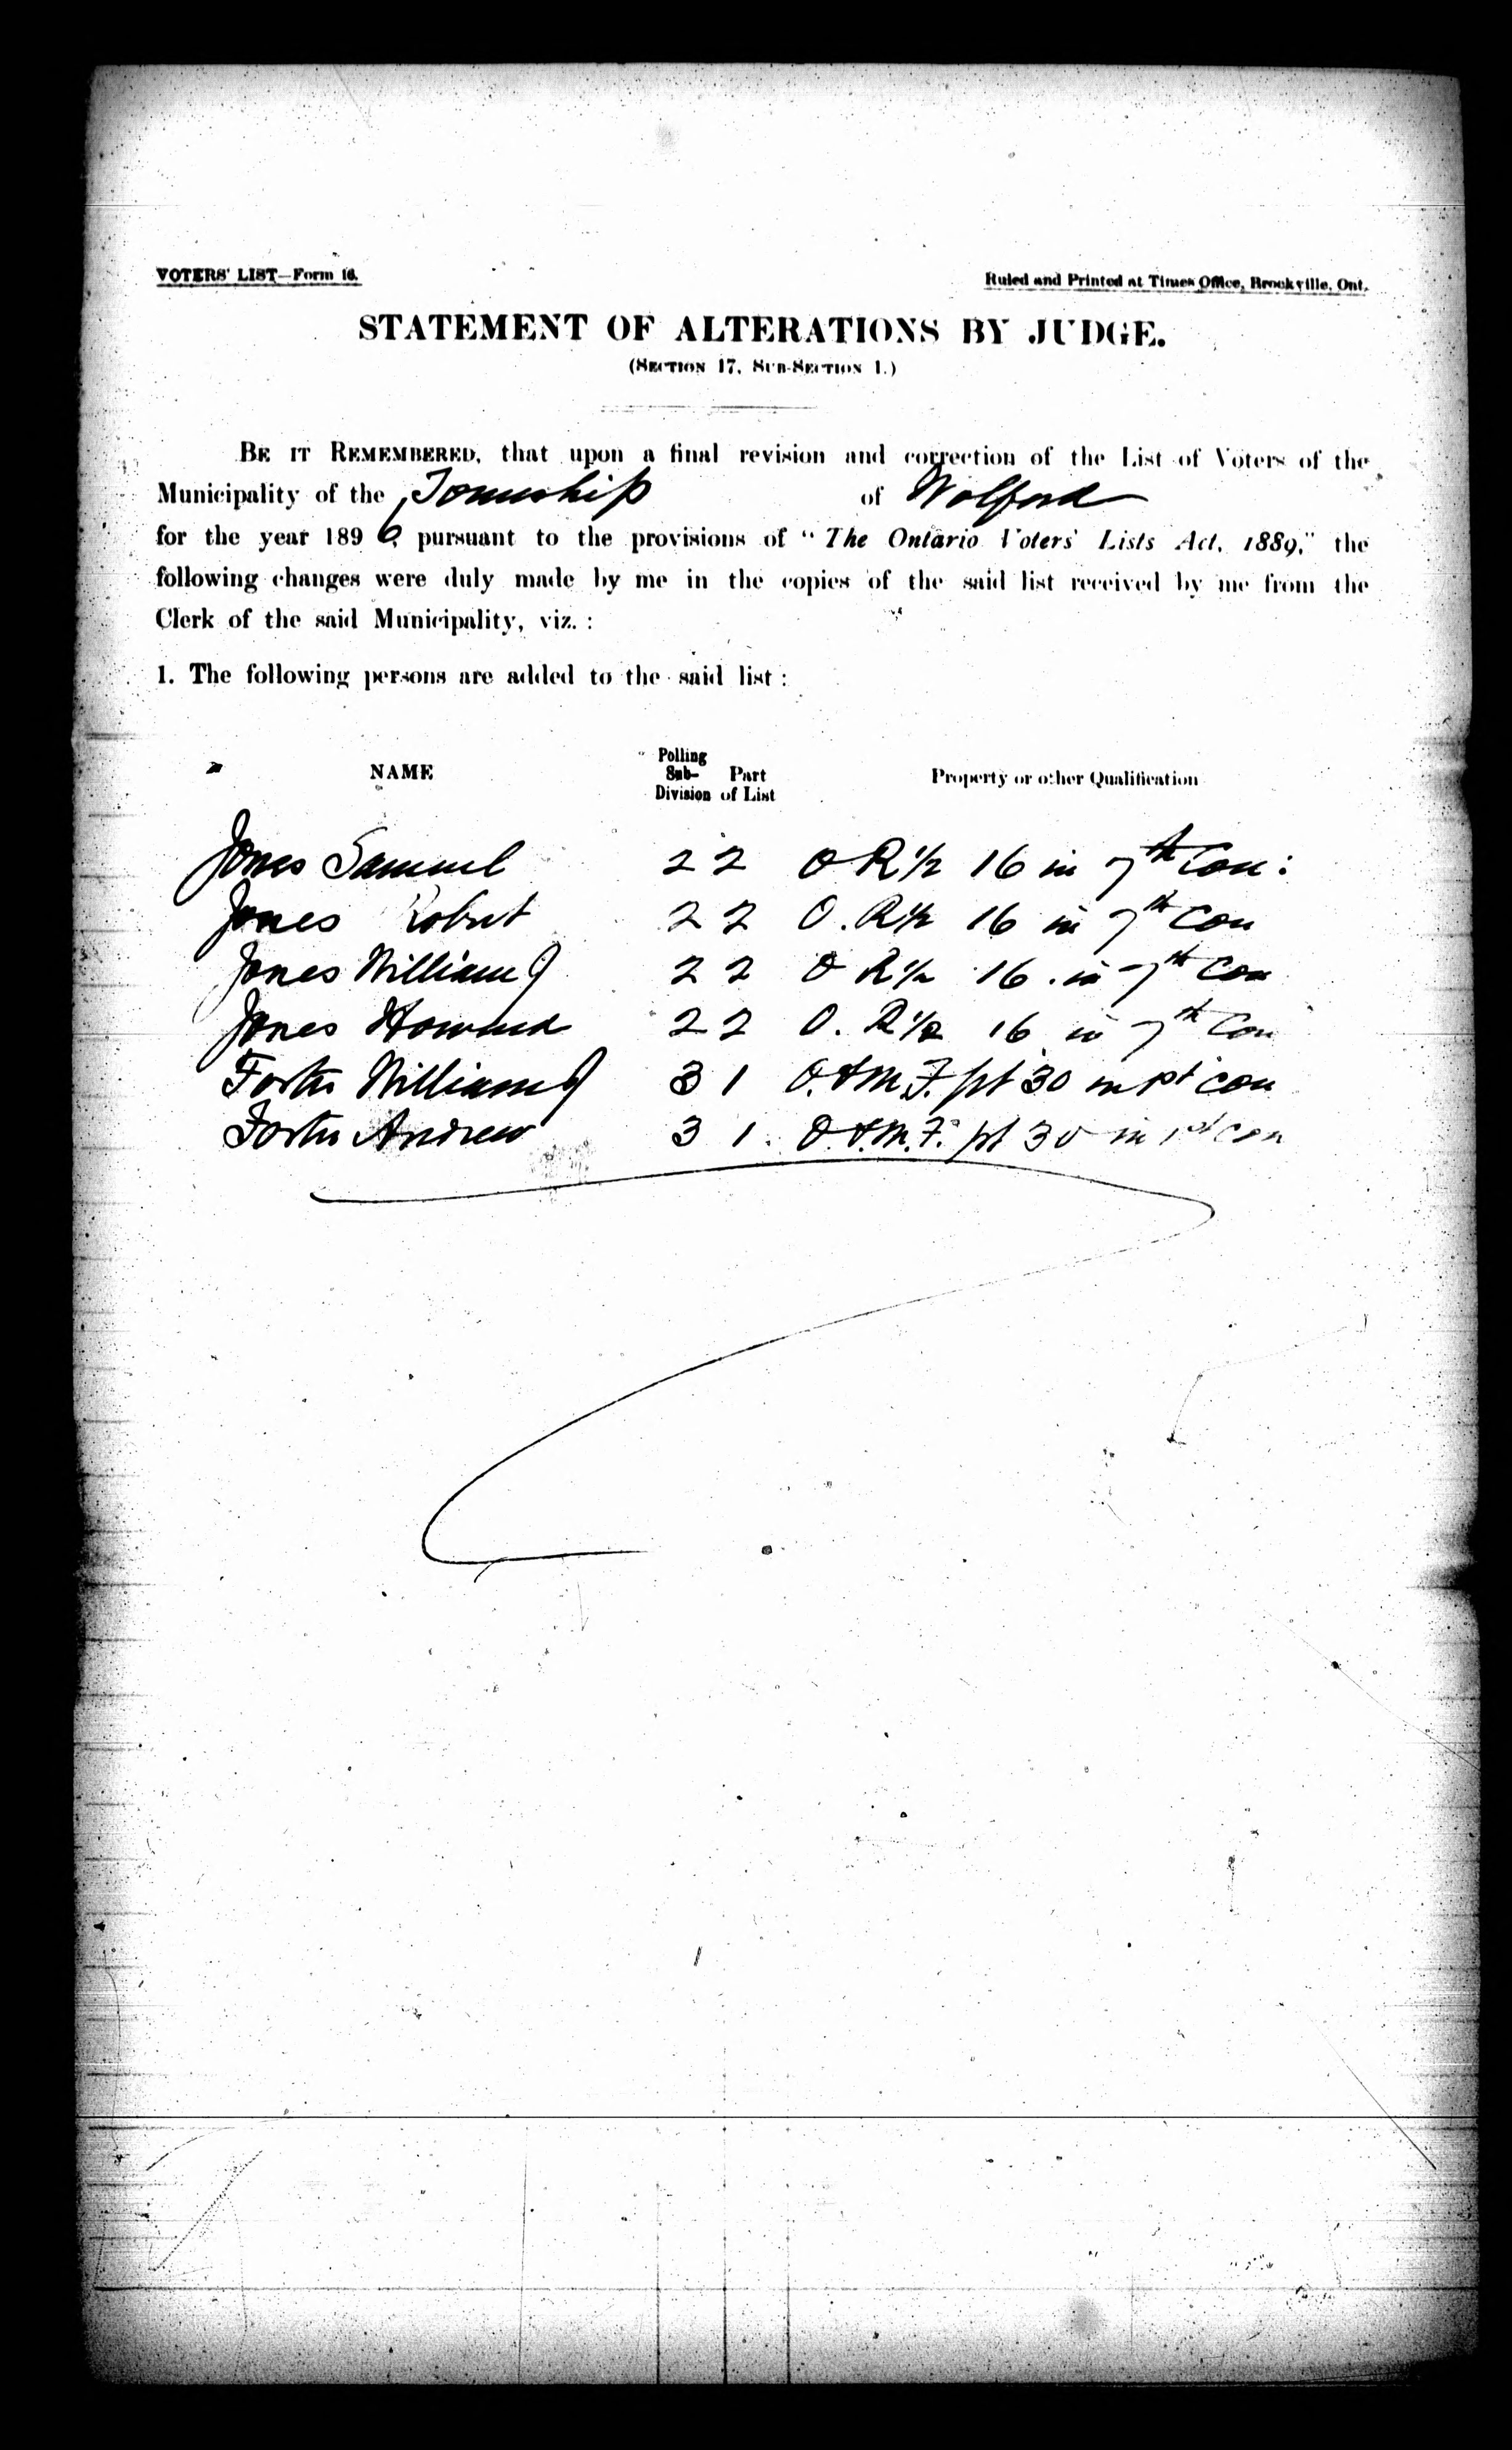 VOTERS' LIST—Form 16.
Ruled and Printed at Times Office, Brockville, Ont.
STATEMENT OF ALTERATIONS BY JUDGE.
(SECTION 17, SUB-SECTION 1.)
BE IT REMEMBERED, that upon a final revision and correction of the List of Voters of the
Municipality of the Township of Wolford
for the year 1896, pursuant to the provisions of "The Ontario Voters' Lists Act, 1889," the
following changes were duly made by me in the copies of the said list received by me from the
Clerk of the said Municipality, viz. :
1. The following persons are added to the said list :
NAME Polling Sub-Division Part of List Property or other Qualification
Jones Samuel 2 2 O R 1/2 16 in 7th Con:
Jones Robert 2 2 O. R 1/2 16 in 7th Con
Jones William J 2 2 O R 1/2 16 . in 7th Con
Jones Howard 2 2 O. R 1/2 16 in 7th Con
Foster William J 3 1 O. & M. F. pt 30 in 1st Con
Foster Andrew 3 1. O. & M. F. pt 30 in 1st Con